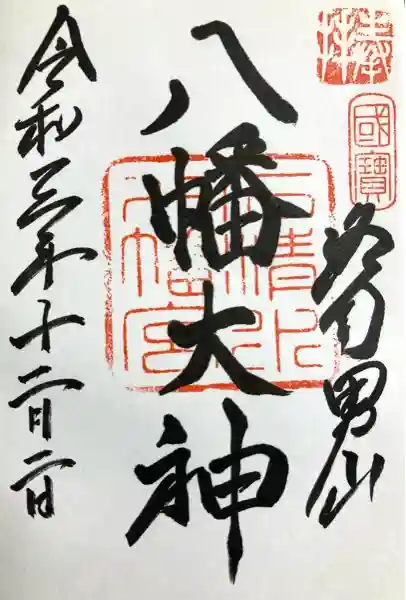 奉拝
國寶
男山
八幡大神
石清水
八幡宮
令和三年十二月二日